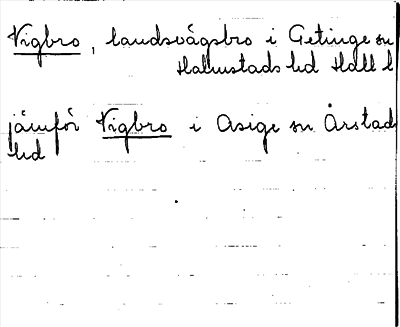 Vigbro, landsvägsbro i Getinge sn
Halmstads hd Hall l
jämför Vigbro i Asige sn Årstad
hd